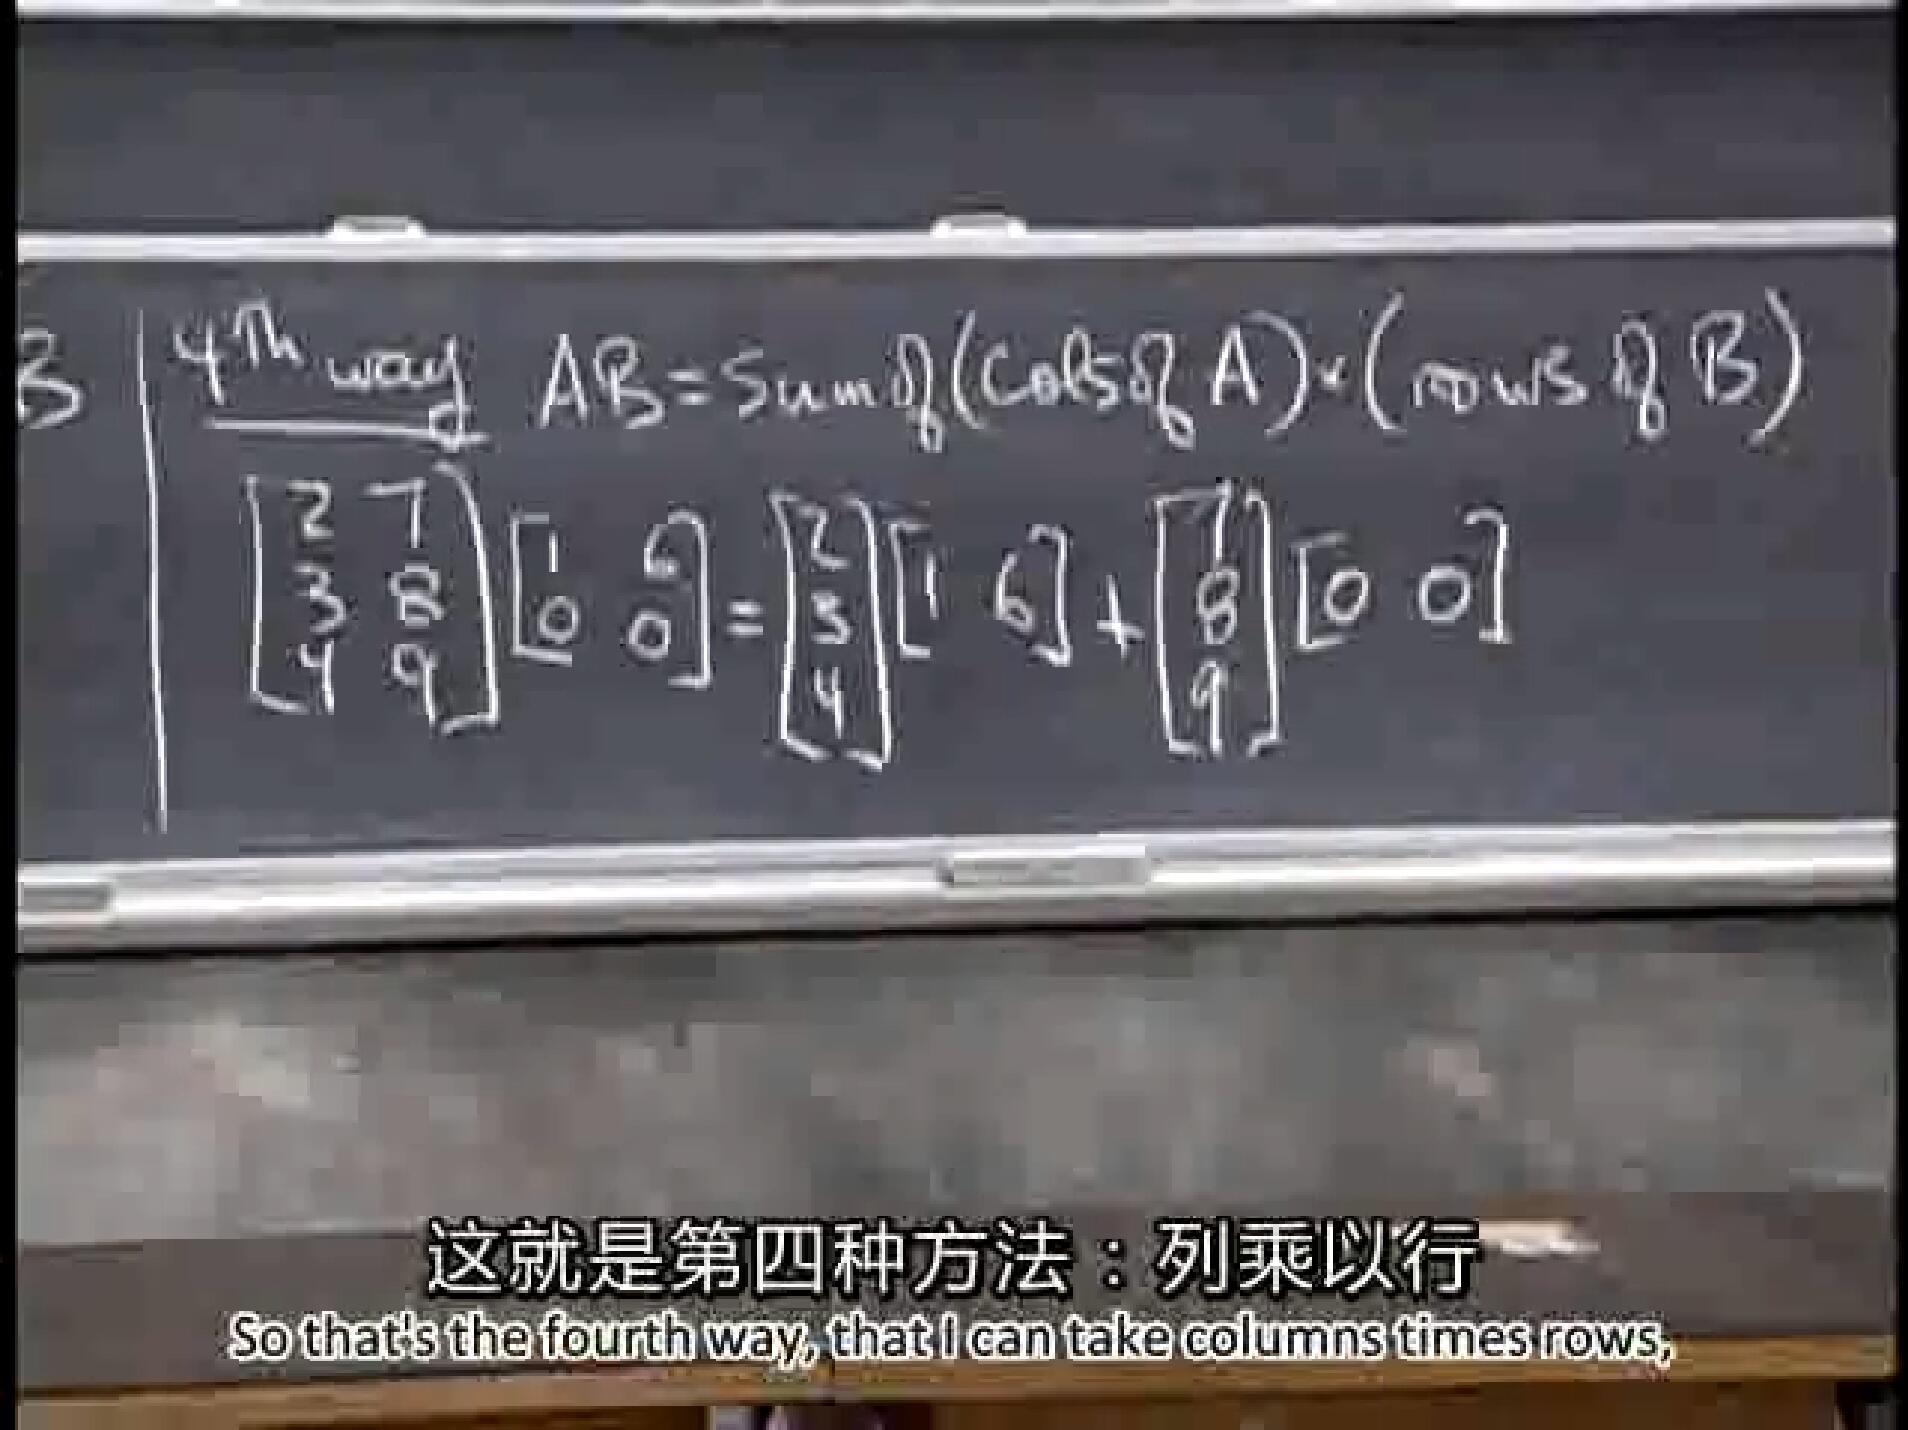 B
4th way AB = Sum of (Cols of A) × (rows of B)
[2 7; 3 8; 4 9] [1 6; 0 0] = [2; 3; 4] [1 6] + [7; 8; 9] [0 0]
这就是第四种方法：列乘以行
So that's the fourth way, that I can take columns times rows,